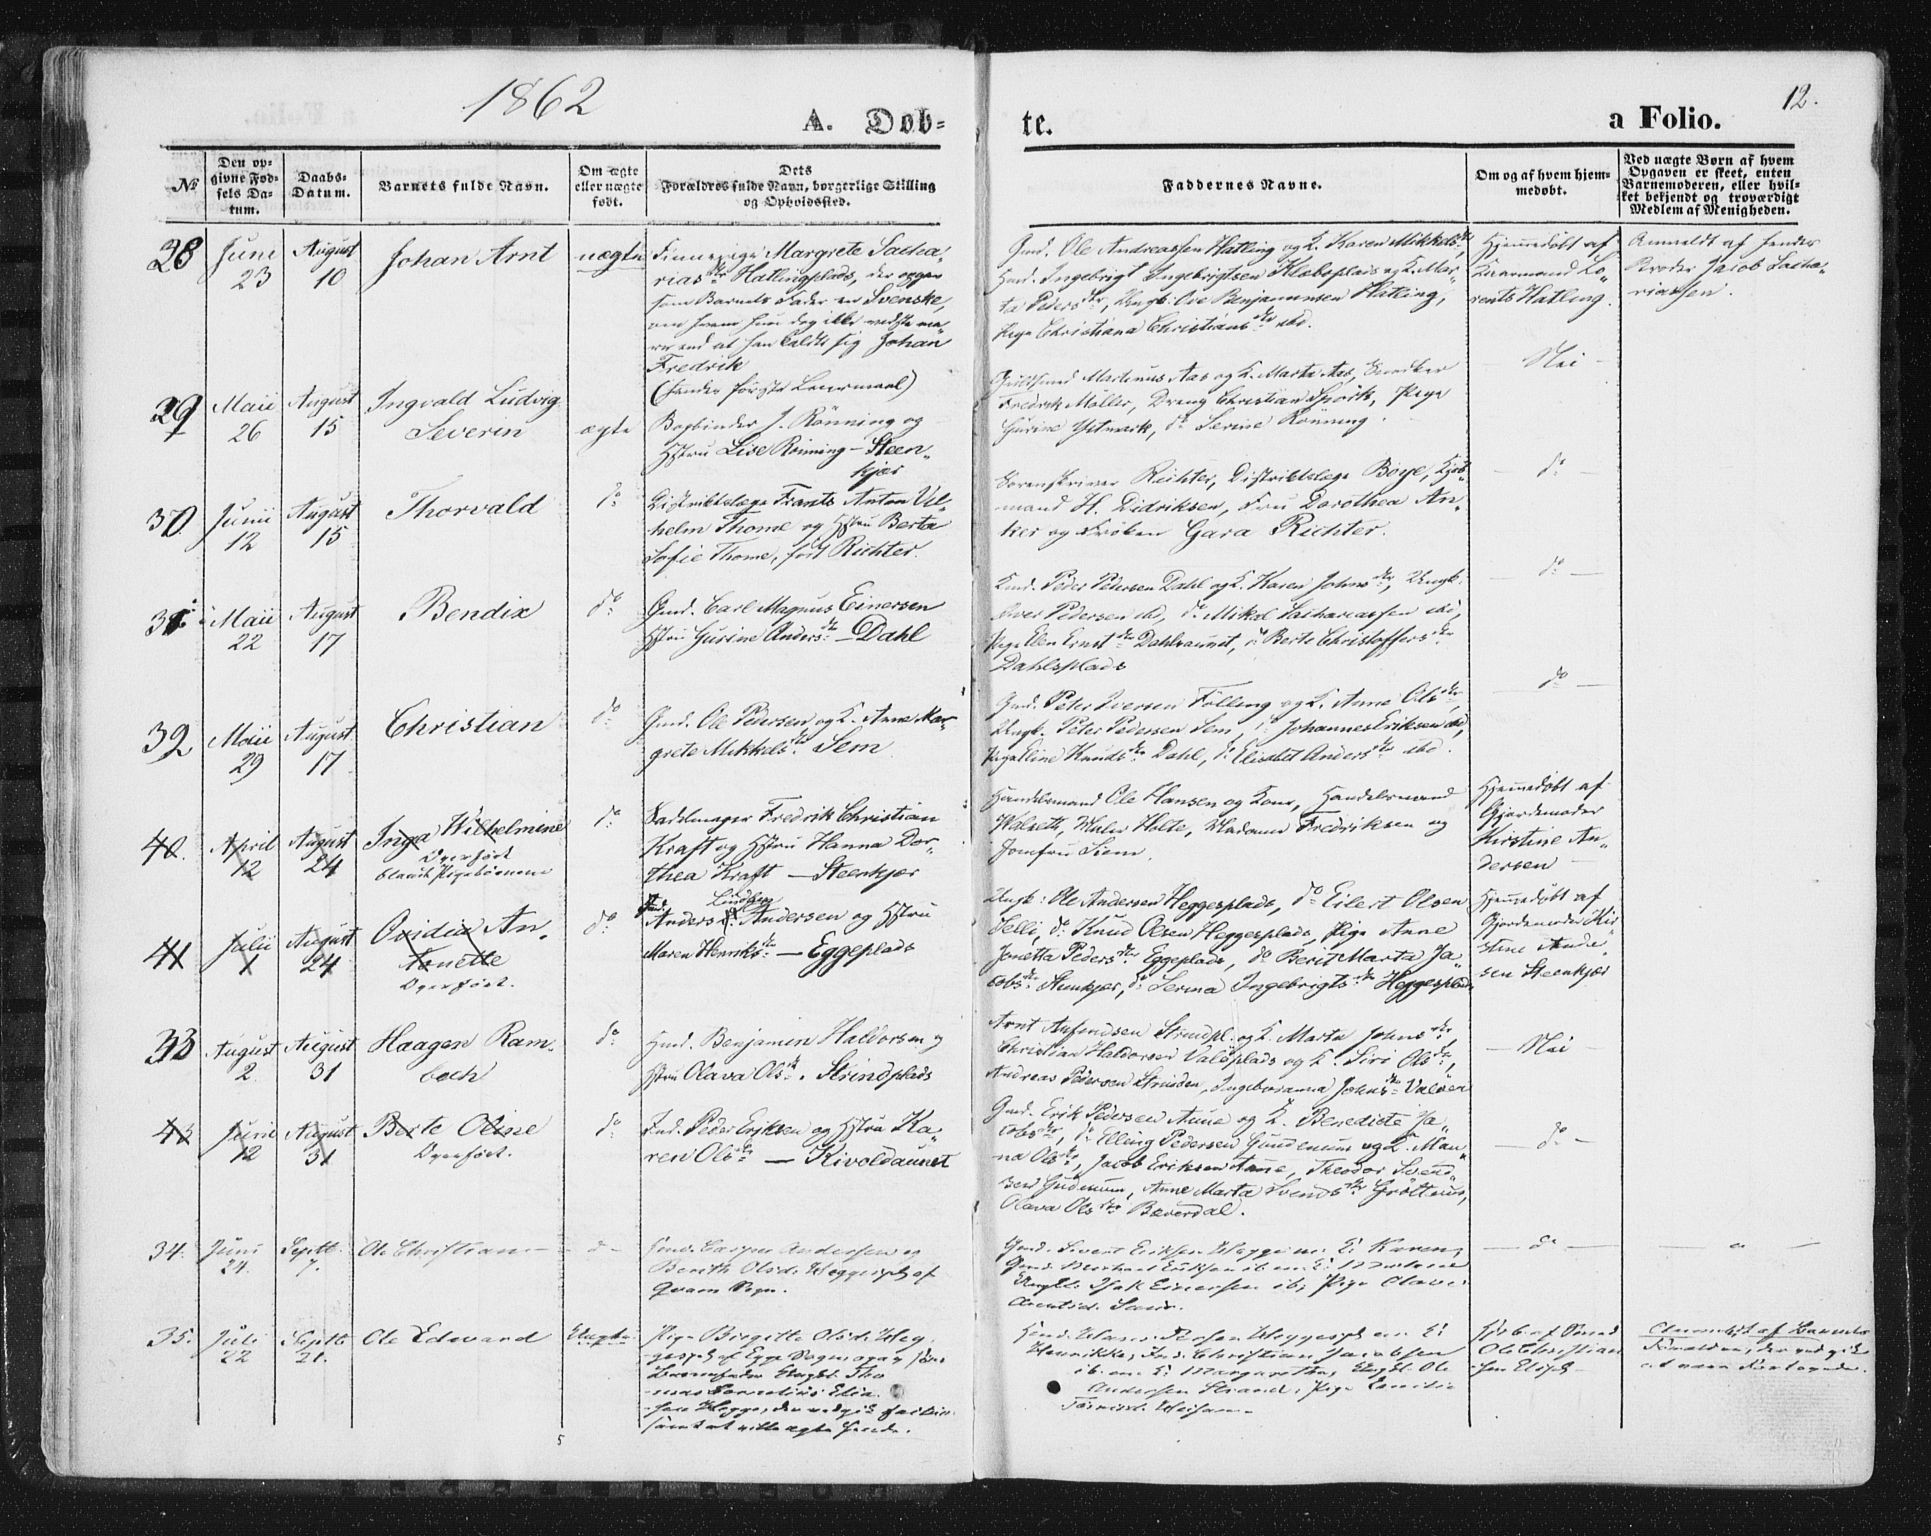 1862
A. Dob=
te.
a Folio.
12.
No
Den op=
givne Fød=
sels Da=
tum.
Daabs=
Datum.
Barnets fulde Navn.
Om ægte
eller uægte
født.
Dets
Forældres fulde Navn, borgerlige Stilling
og Opholdssted.
Faddernes Navne.
Om og af hvem hjem=
medøbt.
Ved uægte Børn af hvem
Opgaven er skeet, enten
Barnemoderen, eller hvil=
ket bekjendt og troværdigt
Medlem af Menigheden.
28
Juni
23
August
10
Johan Arnt
uægte
Finnepige Margrete Sacha=
rias dtr Hatlingplads, der opgav
som Barnets Fader en Svenske,
om hvem hun dog ikke vidste me=
re end at han kaldte sig Johan
Fredrik
(hendes første Leiermaal)
Gmd. Ole Andreassen Hatling og K. Karen Mikkels dtr
Hmd. Ingebrigt Ingebrigtsen Klæbsplads og K. Mar=
ta Peders dtr, Ungk. Ove Benjaminsen Hatling,
Pige Christiana Christians dtr ibd.
Hjemmedøbt af
Gaarmand Lo=
rents Hatling.
Anmeldt af hendes
Broder Jacob Sacha=
riassen.
29
Maii
26
August
15
Ingvald Ludvig
Severin
ægte
Bogbinder J. Rönning og
Hstru Lise Rönning - Steen=
kjær
Guldsmed Martinus Aas og K. Marta Aas, Snedker
Fredrik Möller, Dreng Christian Spörk, Pige
Gurine Ystmark, do Serine Rönning.
- Nei -
30.
Junii
12
August
15
Thorvald
do
Distriktslæge Frants Anton Vil=
helm Thome og Hstru Berta
Sofie Thome, født Richter.
Sorenskriver Richter, Distriktslæge Boye, Kjøb=
mand H. Didriksen, Fru Dorothea An=
ker og Frøken Gara Richter.
- do -
31
Maii
22
August
17
Bendix
do
Gmd. Carl Magnus Einersen
Hstru Gurine Anders dtr - Dahl
Gmd. Peder Pedersen Dahl og K. Karen Johns dtr, Ungk.
Iver Pedersen ibd, do Mikal Sachariassen ibd,
Pige Elen Ernst dtr Dahlsaunet, do Berte Christoffers dtr
Dahlsplads
- do -
32
Maii
29
August
17
Christian
do
Gmd. Ole Pedersen og K. Anne Mar=
grete Mikkels dtr Sem
Gmd. Peter Iversen Fölling og K. Anne Ols dtr,
Ungk. Peter Pedersen Sem, do Johannes Eriksen ibd,
Pige Eline Knuds dtr Dahl, do Elisabet Anders dtr ibd.
- do -
40.
April
12
August
24
Inga Wilhelmine
Overført
blandt Pigebörnene
do
Sadelmager Fredrik Christian
Kraft og Hstru Hanna Dor=
thea Kraft - Steenkjær
Handelsmand Ole Hansen og Kone, Handelsmand
Walseth, Maler Holte, Madame Fredriksen og
Jomfru Siem.
Hjemmedøbt af
Gjordemoder
Kirstine An=
dersen -
41
Julii
1
August
24
Ovidia An=
tonette
Overført.
do
Anders Andersen og Hstru
Maren Henriks dtr - Eggeplads
Ungk: Ole Andersen Heggesplads, do Eilert Olsen
Selli, do Knud Olsen Heggesplads, Pige Anne
Janetta Peders dtr Eggeplads, do Berit Marta Ja=
cobs dtr Steenkjær, do Serina Ingebrigts dtr Heggesplads
Hjemmedøbt af
Gjordemoder Kir=
stine Ander=
sen Steenkjær
33
August
2
August
31
Haagen Ram=
bech
do
Hmd. Benjamin Haldorsen og
Hstru Olava Ols dtr. Strindplads
Arnt Anfindsen Strindpl. og K. Marta Johns dtr,
Christian Haldorsen Valöplads og K. Siri Ols dtr,
Andreas Pedersen Strinden, Ingeborganna Johns dtr Valöen
- Nei -
43
Junii
12
August
31
Berte Oline
Overført.
do
Ind. Peder Eriksen og Hstru Ka=
ren Ols dtr - Kivoldaunet
Gmd. Erik Pedersen Aune og K. Benedicte Ja=
cobs dtr, do Elling Pedersen Gundemum og K. Man=
na Ols dtr, Jacob Eriksen Aune, Theodor Svend=
sen Gudmum, Anne Marta Svends dtr Gröttum,
Olava Ols dtr Bæverdal.
- do -
34.
Juni
24.
Septb.
7.
Ole Christian -
- do -
Hmd. Casper Andersen og
Berith Olsd. Heggespl. af
Qvam Sogn.
Gmd. Sivert Eriksen Hegge m. K. Karen,
- do -
- " -
35.
Juli
22
Septb.
21.
Ole Edvard
Uægte
Pige Birgitte Olsd. Heg=
gespl. af Egge Sogn,
5